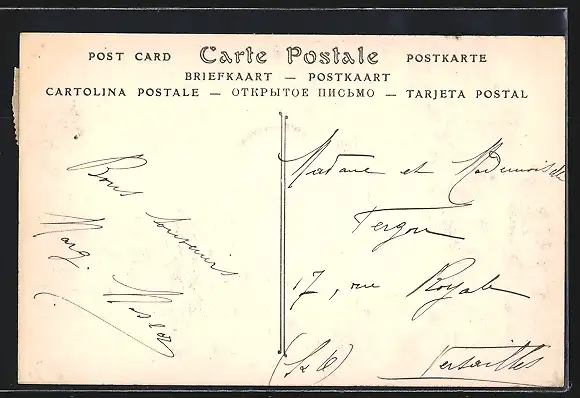 POST CARD Carte Postale POSTKARTE
BRIEFKAART — POSTKAART
CARTOLINA POSTALE — ОТКРЫТОЕ ПИСЬМО — TARJETA POSTAL
Bons souvenirs
Marg.
Madame et Mademoiselle
Fergon
17, rue Royale
(S & O) Versailles